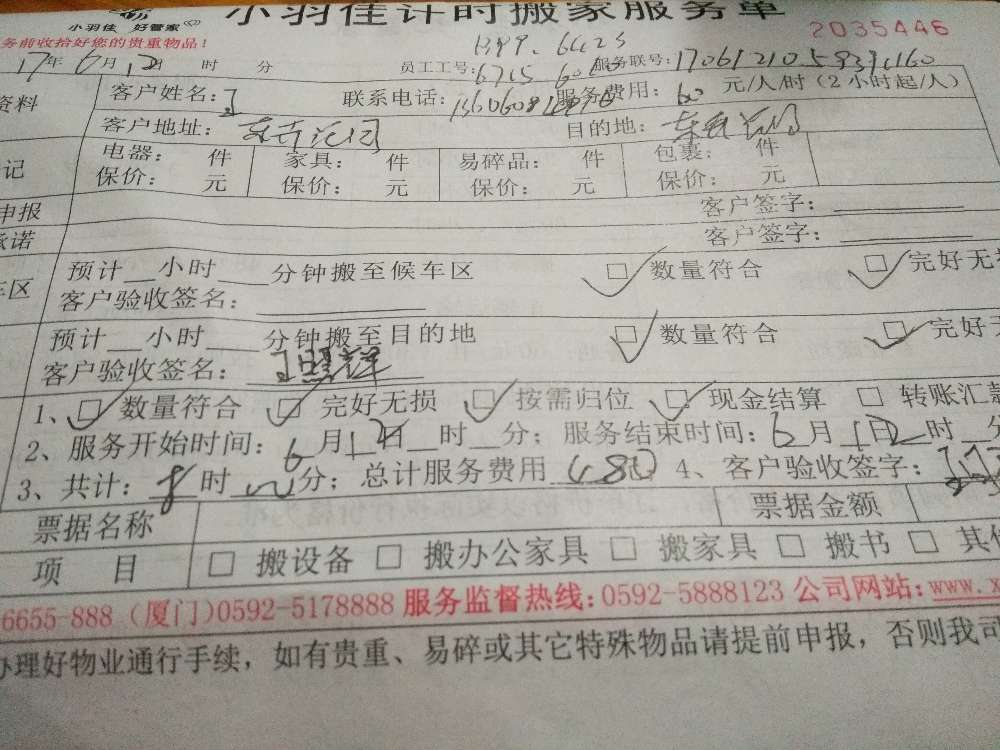 小羽佳计时搬家服务单
小羽佳 好管家
务前收拾好您的贵重物品！
2035446
17年6月12日 时 分 员工工号： 服务联号：
资料 客户姓名： 联系电话： 服务费用：60 元/人/时（2小时起/人）
客户地址： 目的地：
记 电器： 件 家具： 件 易碎品： 件 包裹： 件
保价： 元 保价： 元 保价： 元 保价： 元
申报 客户签字：
承诺 客户签字：
车区 预计__小时____分钟搬至候车区 □ 数量符合 □ 完好无损
客户验收签名：
预计__小时____分钟搬至目的地 □ 数量符合 □ 完好无
客户验收签名：
1、□ 数量符合 □ 完好无损 □ 按需归位 □ 现金结算 □ 转账汇款
2、服务开始时间：6月12日__时__分；服务结束时间：6月12日__时__分
3、共计：8时 分；总计服务费用480 4、客户验收签字：
票据名称 票据金额
项 目 □ 搬设备 □ 搬办公家具 □ 搬家具 □ 搬书 □ 其他
6655-888 (厦门)0592-5178888 服务监督热线：0592-5888123 公司网站：www.x
办理好物业通行手续，如有贵重、易碎或其它特殊物品请提前申报，否则我司